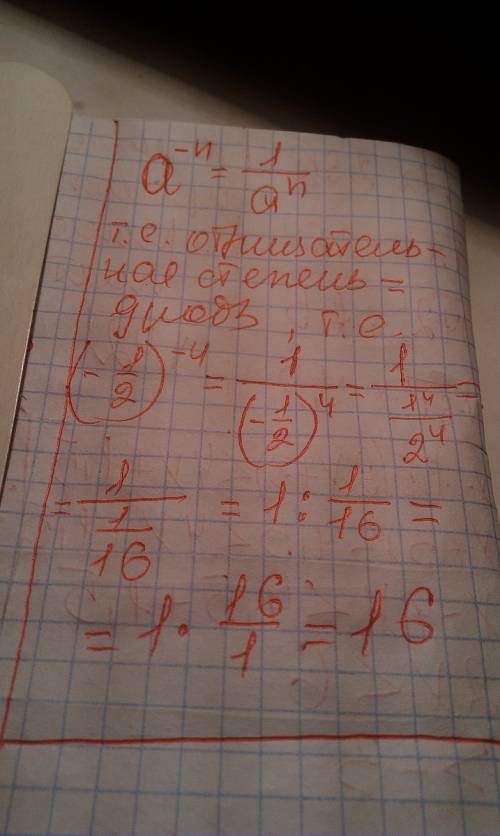 a⁻ⁿ = 1/aⁿ
т.е. отрицатель-
ная степень =
дробь, т.е.
(-1/2)⁻⁴ = 1/(-1/2)⁴ = 1/(1⁴/2⁴) =
= 1/(1/16) = 1 : 1/16 =
= 1 · 16/1 = 16